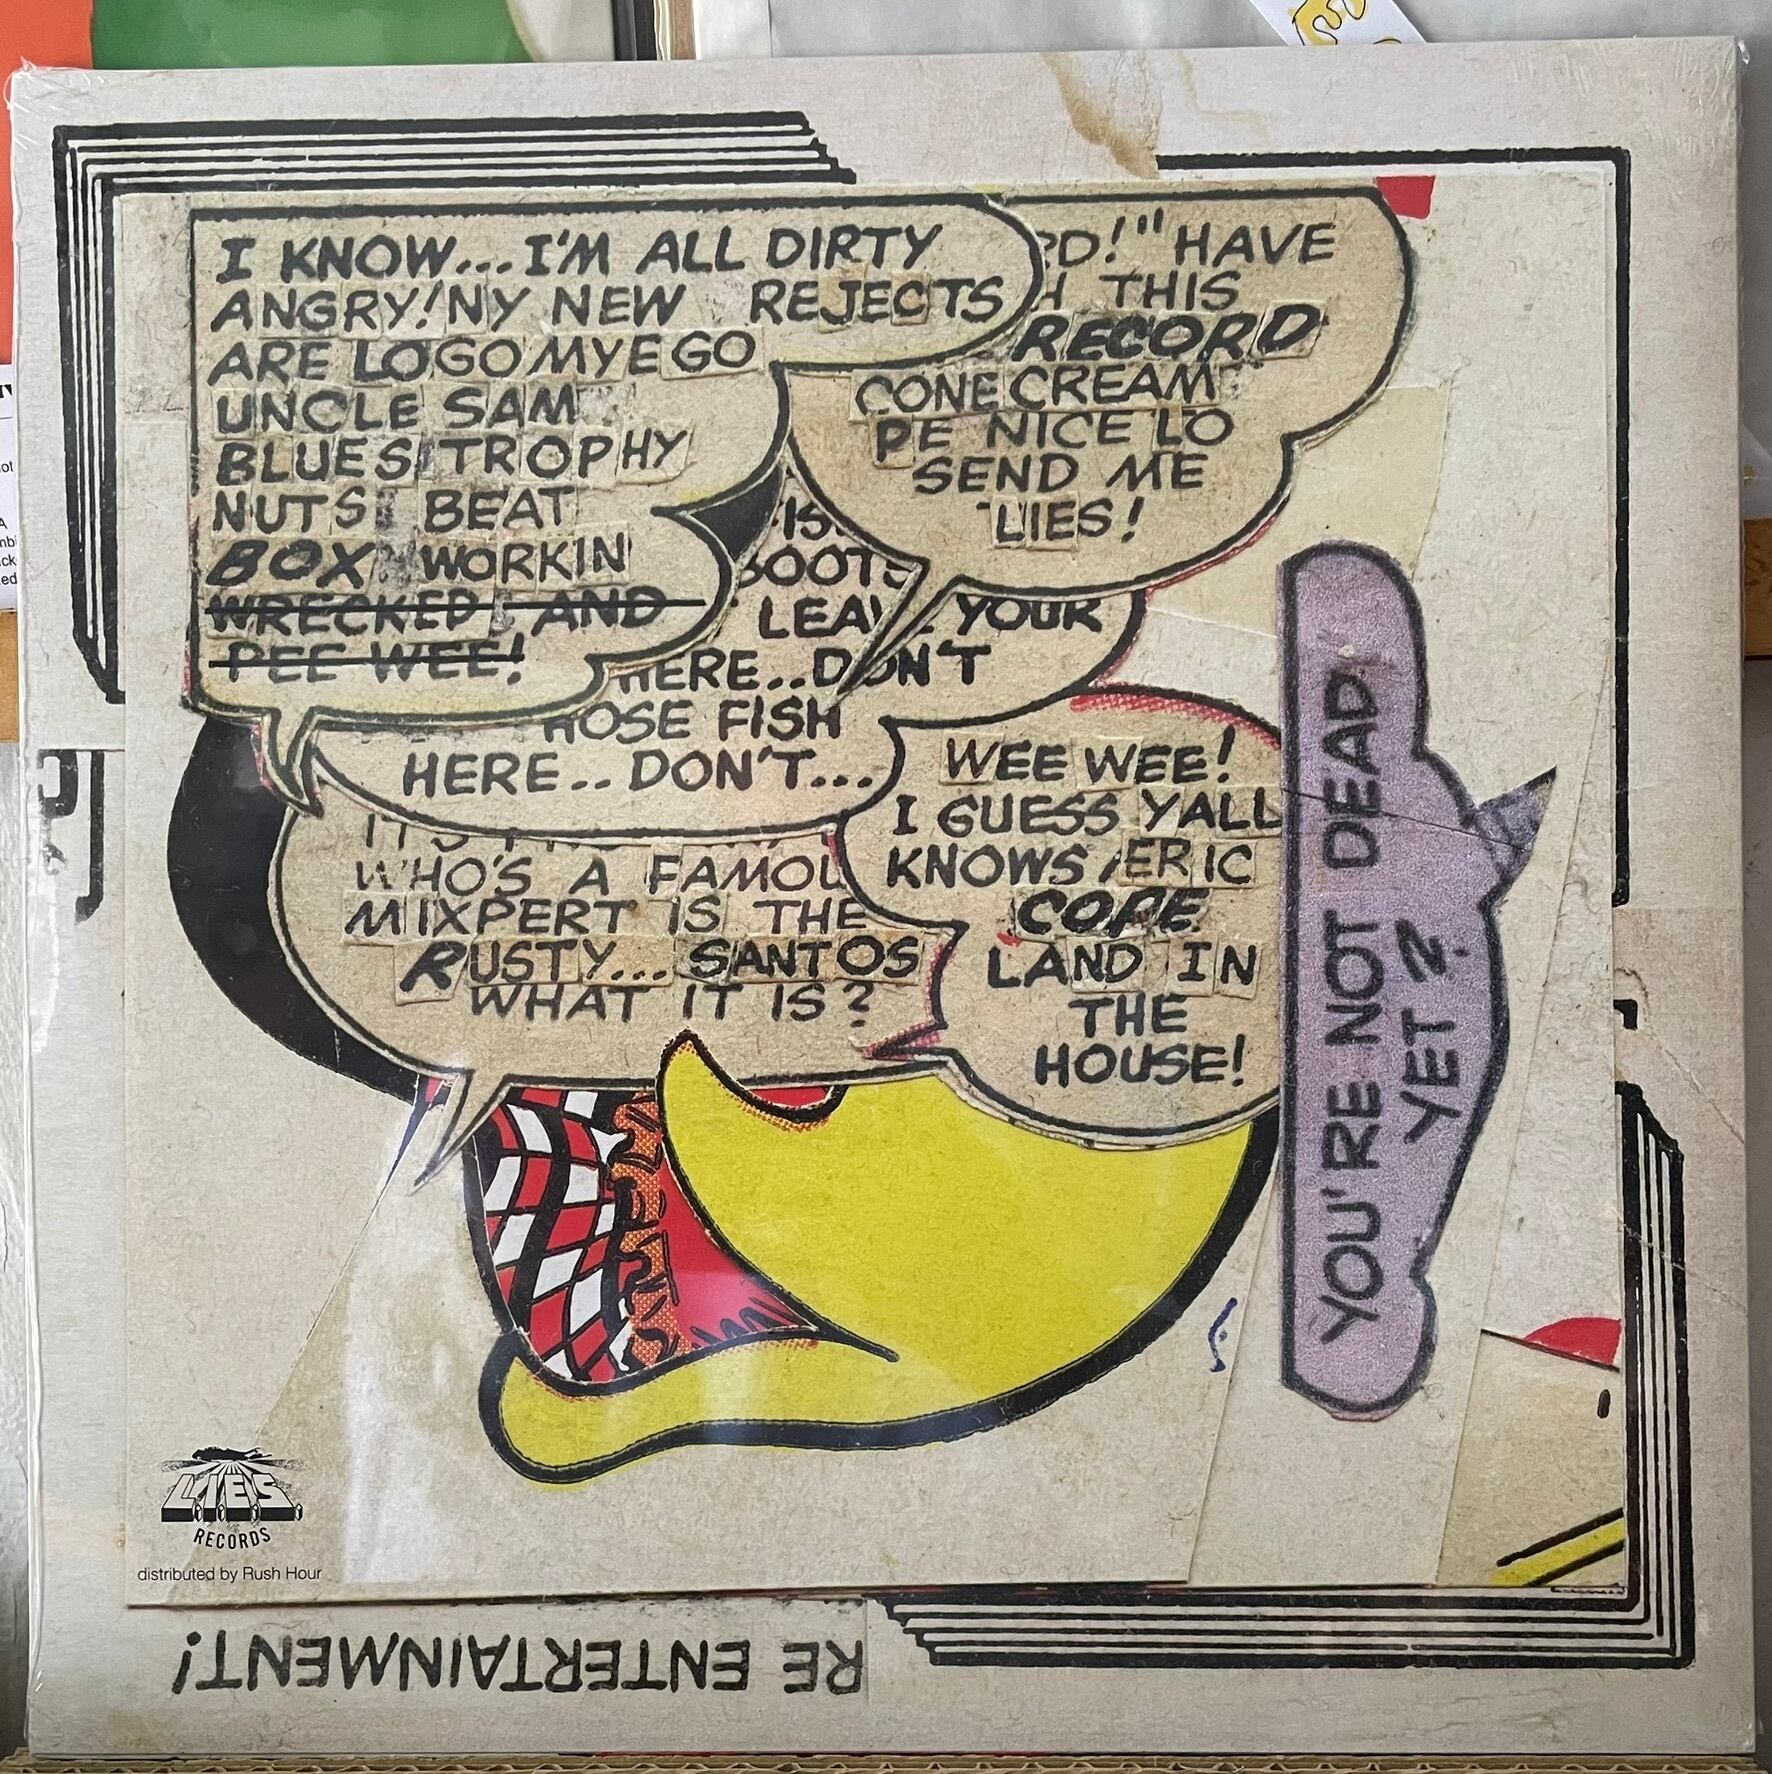 I KNOW...I'M ALL DIRTY
ANGRY! NY NEW REJECTS
ARE LOGO MY EGO
UNCLE SAM
BLUES TROPHY
NUTS BEAT
BOX WORKIN
WRECKED AND
PEE WEE!
D!" HAVE
THIS
RECORD
CONE CREAM
PE NICE LO
SEND ME
LIES!
IS
OOTS
LEAV YOUR
HERE..DON'T
HOSE FISH
HERE..DON'T...
WHO'S A FAMOU
MIXPERT IS THE
RUSTY...SANTOS
WHAT IT IS?
WEE WEE!
I GUESS YALL
KNOWS ERIC
COPE
LAND IN
THE
HOUSE!
YOU'RE NOT DEAD
YET?
L.I.E.S.
RECORDS
distributed by Rush Hour
RE ENTERTAINMENT!